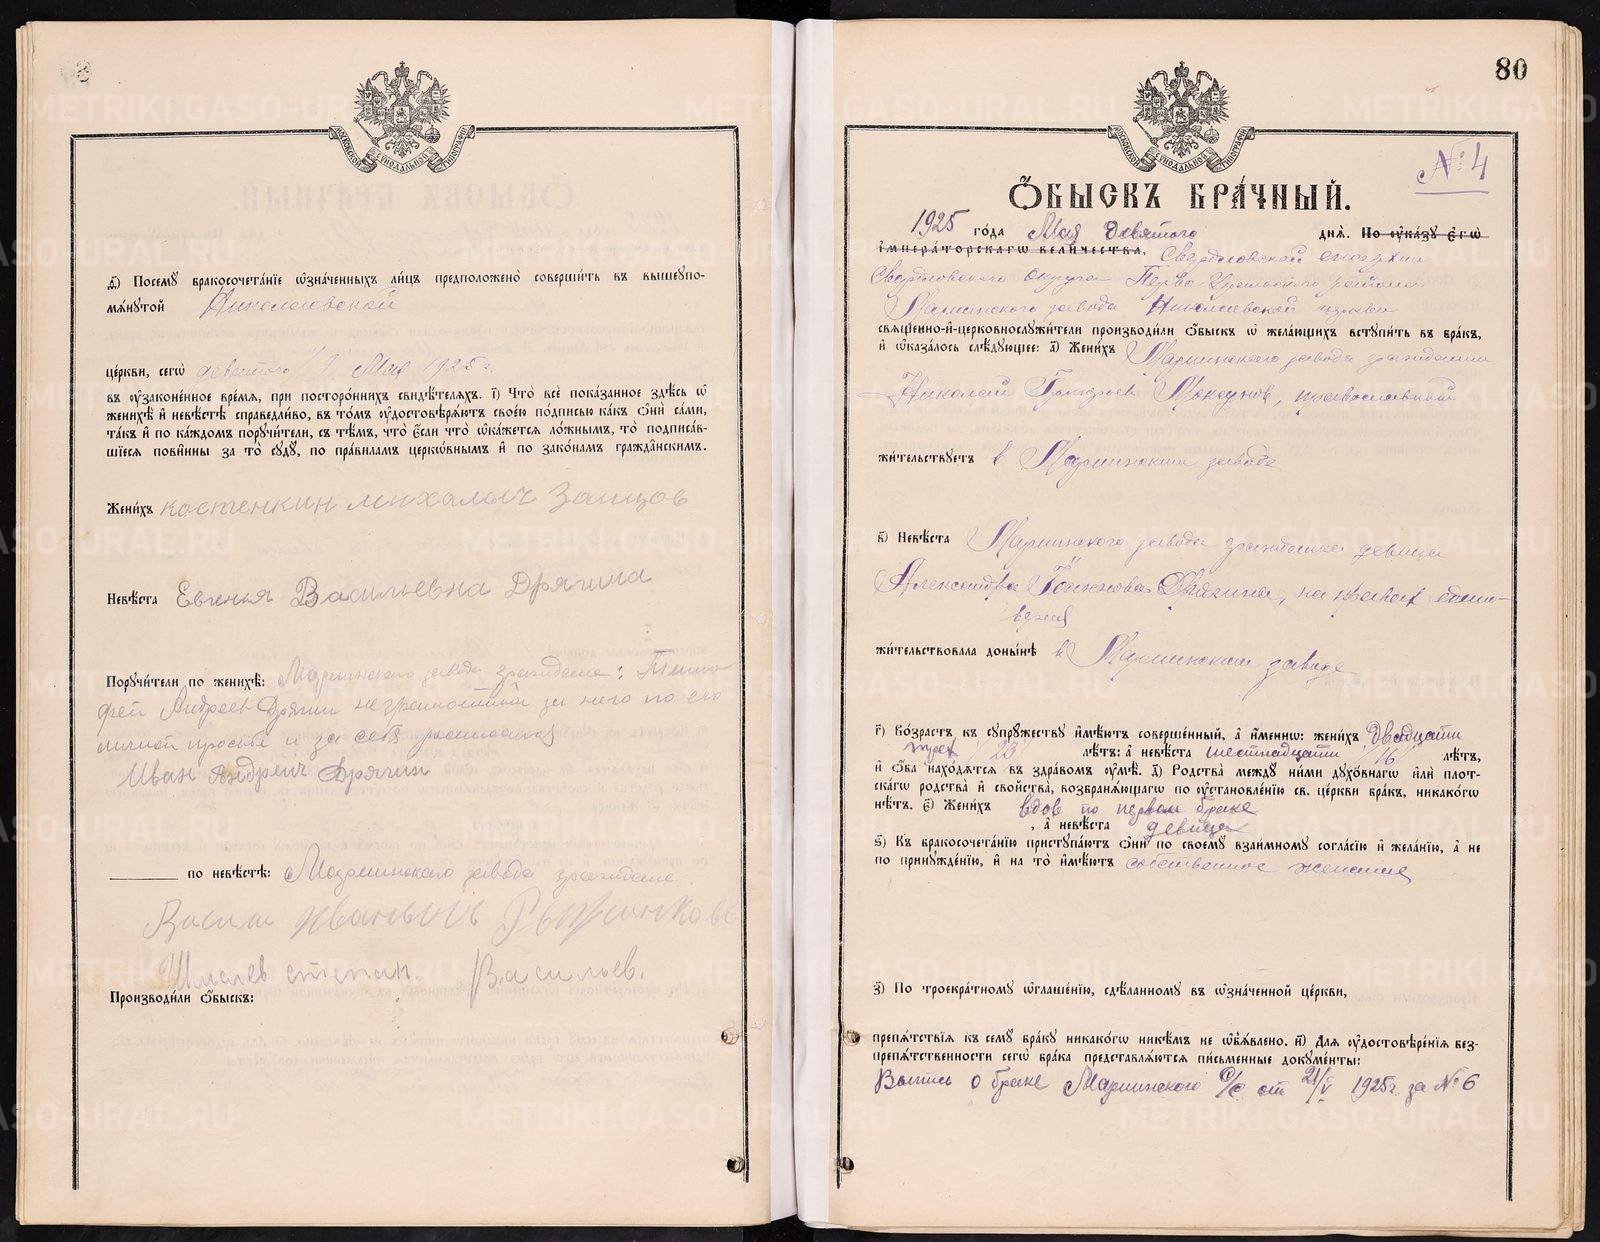 МОСКОВСКОЙ СѴНОДАЛЬНОЙ ТИПОГРАФІИ
д҃) Посемꙋ бракосочета́нїе ѡзна́ченныхъ ли́цъ предположено̀ соверши́ть въ вышеупо-
мѧ́нутой Николаевской
це́ркви, сегѡ̀ девятого /9/ Мая 1925 г.
въ ᲂу҆зако́ненное вре́мѧ, при посторо́ннихъ свидѣ́телѧхъ. і҃) Что̀ всѐ пока́занное здѣ́сь ѡ҆
женихѣ̀ и҆ невѣ́стѣ справедли́во, въ то́мъ ᲂу҆достовѣрѧ́ютъ свое́ю по́дписью ка́къ ѻ҆нѝ са́ми,
та́къ и҆ по ка́ждомъ поручи́тели, съ тѣ́мъ, что̀ є҆́сли что̀ ѡ҆ка́жетсѧ ло́жнымъ, то̀ подписа́в-
шїесѧ пови́нны за то̀ сꙋдꙋ̀, по пра́виламъ церкѡ́внымъ и҆ по зако́намъ гражда̂нскимъ.
Жени́хъ костенкин михалыч Заицов
Невѣ́ста Евгенья Васильевна Дрягина
Порꙋчи́тели по женихѣ̀: Мариинского завода граждане: Тимо-
фей Андреев Дрягин неграмотный за него по его
личной просьбе и за себя расписался
Иван Андреич Дрягин
по невѣ́стѣ: Мариинского завода граждане
Василий Иванычь
Шмелев степан. Васильев.
Производи́ли ѻ҆́быскъ:
80
№ 4
МОСКОВСКОЙ СѴНОДАЛЬНОЙ ТИПОГРАФІИ
Ѻ҆́БЫСКЪ БРА́ЧНЫЙ.
1925 го́да Мая девятого днѧ̀. По ᲂу҆ка́зꙋ є҆гѡ̀
і҆мпера́торскагѡ вели́чества, Свердловской епархии
Свердловского округа Перво-Уральского района
Мариинского завода Николаевской церкви
свѧще́нно-и҆-церковнослꙋжи́тели производи́ли ѻ҆́быскъ ѡ҆ жела́ющихъ встꙋпи́ть въ бра́къ,
и҆ ѡ҆каза́лось слѣ́дꙋющее: а҃) Жени́хъ Мариинского завода гражданин
Николай Григорьев, православный
жи́тельствꙋетъ в Мариинском заводе
в҃) Невѣ́ста Мариинского завода гражданка девица
Александра Дрягина, на правах едино-
верия
жи́тельствовала доны́нѣ в Мариинском заводе
г҃) Во́зрастъ къ сꙋпрꙋ́жествꙋ и҆мѣ́ютъ соверше́нный, а҆ и҆́меннѡ: жени́хъ двадцати
трех /23/ лѣ́тъ: а҆ невѣ́ста шестнадцати /16/ лѣ́тъ,
и҆ ѻ҆́ба нахо́дѧтсѧ въ здра́вомъ ᲂу҆мѣ̀. д҃) Родства̀ междꙋ̀ ни́ми дꙋхо́внагѡ и҆лѝ пло́т-
скагѡ родства̀ и҆ сво́йства, возбранѧ́ющагѡ по ᲂу҆становле́нїю св. це́ркви бра́къ, никако́гѡ
нѣ́тъ. є҃) Жени́хъ вдов по первом браке
, а҆ невѣ́ста девица
ѕ҃) Къ бракосочета́нїю пристꙋпа́ютъ ѻ҆нѝ по своемꙋ̀ взаи́мномꙋ согла́сїю и҆ жела́нїю, а҆ не
по принꙋжде́нїю, и҆ на то̀ и҆мѣ́ютъ собственное желание
з҃) По троекра́тномꙋ ѡ҆глаше́нїю, сдѣ́ланномꙋ въ ѡ҆зна́ченной це́ркви,
препѧ́тствїѧ къ семꙋ̀ бра́кꙋ никако́гѡ никѣ́мъ не ѡ҆б̾ѧ́влено. и҃) Длѧ̀ ᲂу҆достовѣре́нїѧ без-
препѧ́тственности сегѡ̀ бра́ка представлѧ́ютсѧ пи́сьменные докꙋме́нты:
Выпись о браке Мариинского С/С от 21/V 1925 г. за № 6
METRIKI.GASO-URAL.RU